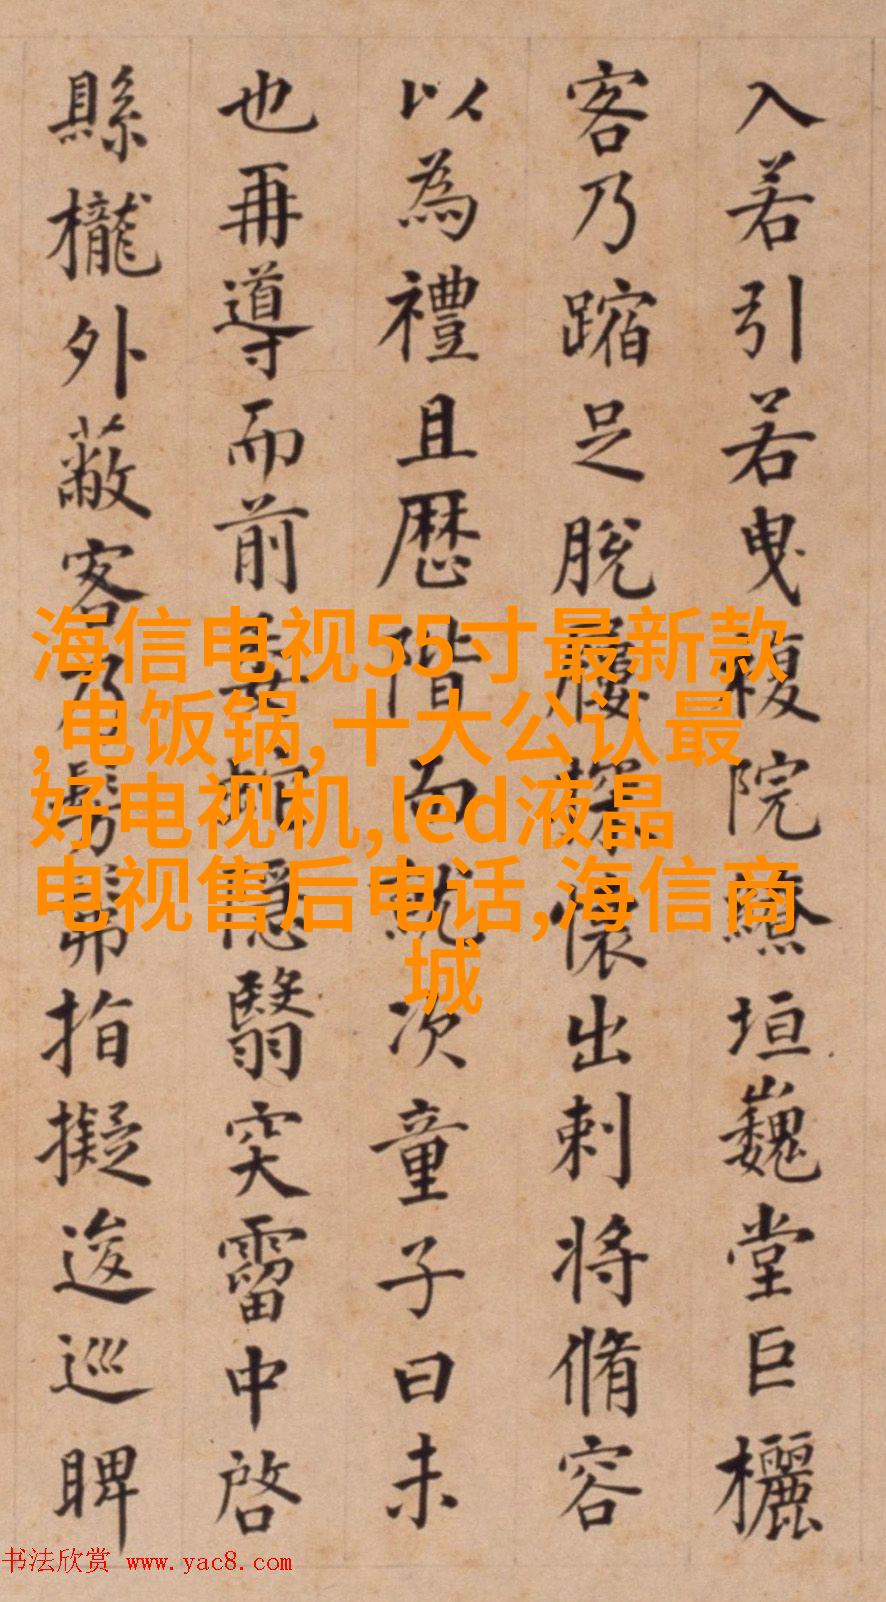 入若引若曳複院繚垣巍堂巨欐
客乃蹜足脫屨探懷出刺將脩容
以為禮且歷階而就次童子曰未
也再導而前隱翳突霤中啓
縣櫳外蔽客乃髣髴指擬逡巡睥
海信电视55寸最新款
,电饭锅,十大公认最
好电视机,led液晶
电视售后电话,海信商
城
书法欣赏 www.yac8.com